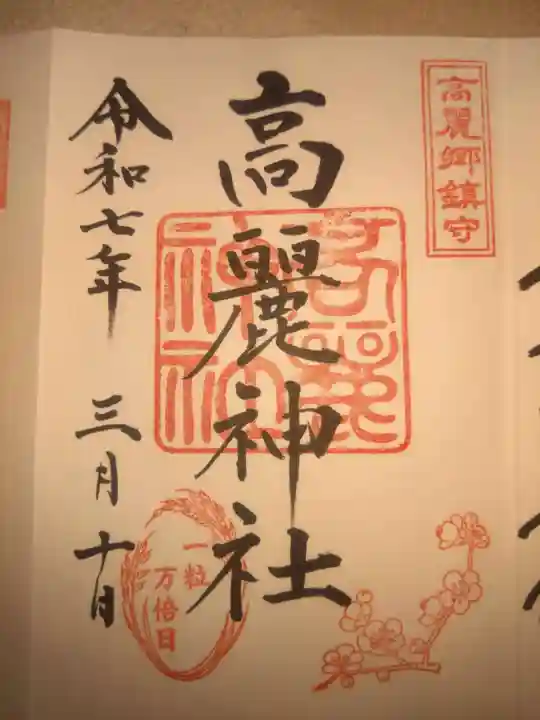 高麗郷鎮守
高麗神社
高麗神社
令和七年 三月十日
一粒
万倍日